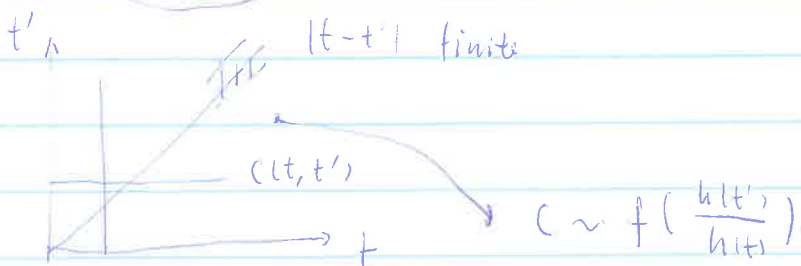 t' |t-t'| finite
C(t,t')
t
C ~ f( h(t') / h(t) )